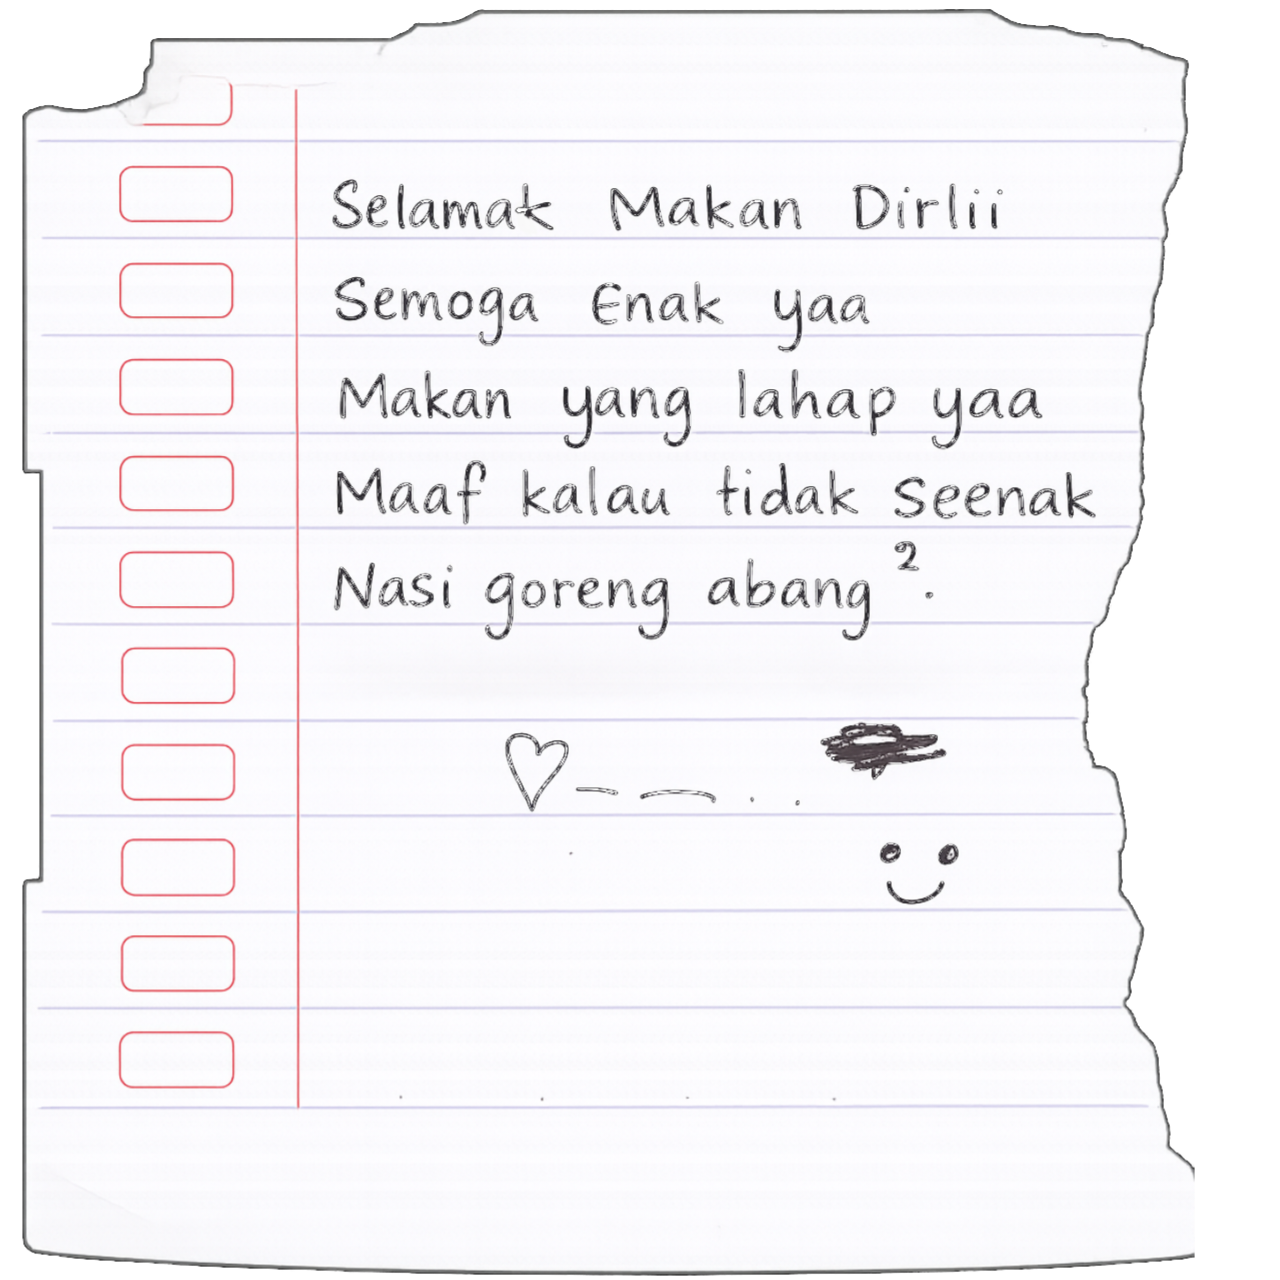 Selamat Makan Dirlii
Semoga Enak yaa
Makan yang lahap yaa
Maaf kalau tidak seenak
Nasi goreng abang².